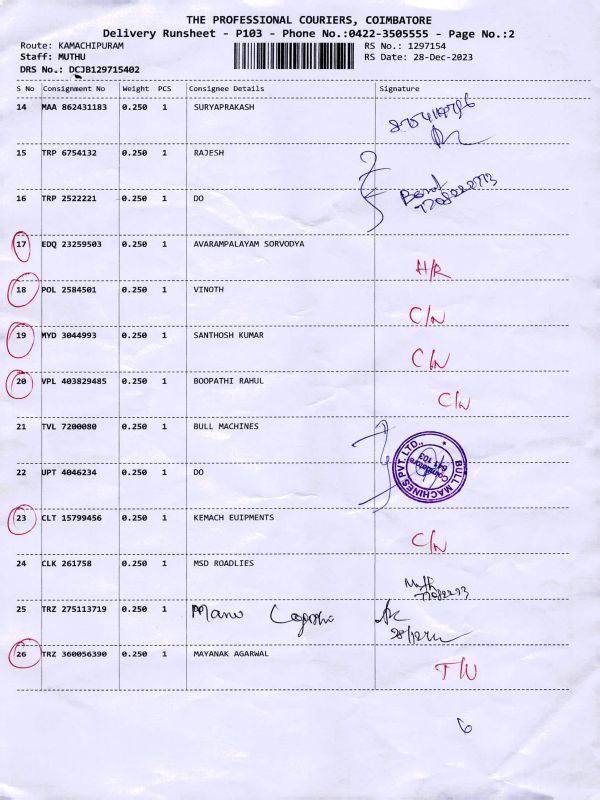 THE PROFESSIONAL COURIERS, COIMBATORE
Delivery Runsheet - P103 - Phone No.:0422-3505555 - Page No.:2
Route: KAMACHIPURAM RS No.: 1297154
Staff: MUTHU RS Date: 28-Dec-2023
DRS No.: DCJB129715402
S No Consignment No Weight PCS Consignee Details Signature
14 MAA 862431183 0.250 1 SURYAPRAKASH
15 TRP 6754132 0.250 1 RAJESH
16 TRP 2522221 0.250 1 DO
17 EDQ 23259503 0.250 1 AVARAMPALAYAM SORVODYA
H/R
18 POL 2584501 0.250 1 VINOTH
C/N
19 MYD 3044993 0.250 1 SANTHOSH KUMAR
C/N
20 VPL 403829485 0.250 1 BOOPATHI RAHUL
C/N
21 TVL 7200080 0.250 1 BULL MACHINES
BULL MACHINES PVT. LTD.,
Coimbatore
641 103
22 UPT 4046234 0.250 1 DO
23 CLT 15799456 0.250 1 KEMACH EUIPMENTS
C/N
24 CLK 261758 0.250 1 MSD ROADLIES
25 TRZ 275113719 0.250 1 Mano
26 TRZ 360056390 0.250 1 MAYANAK AGARWAL
T/N
6